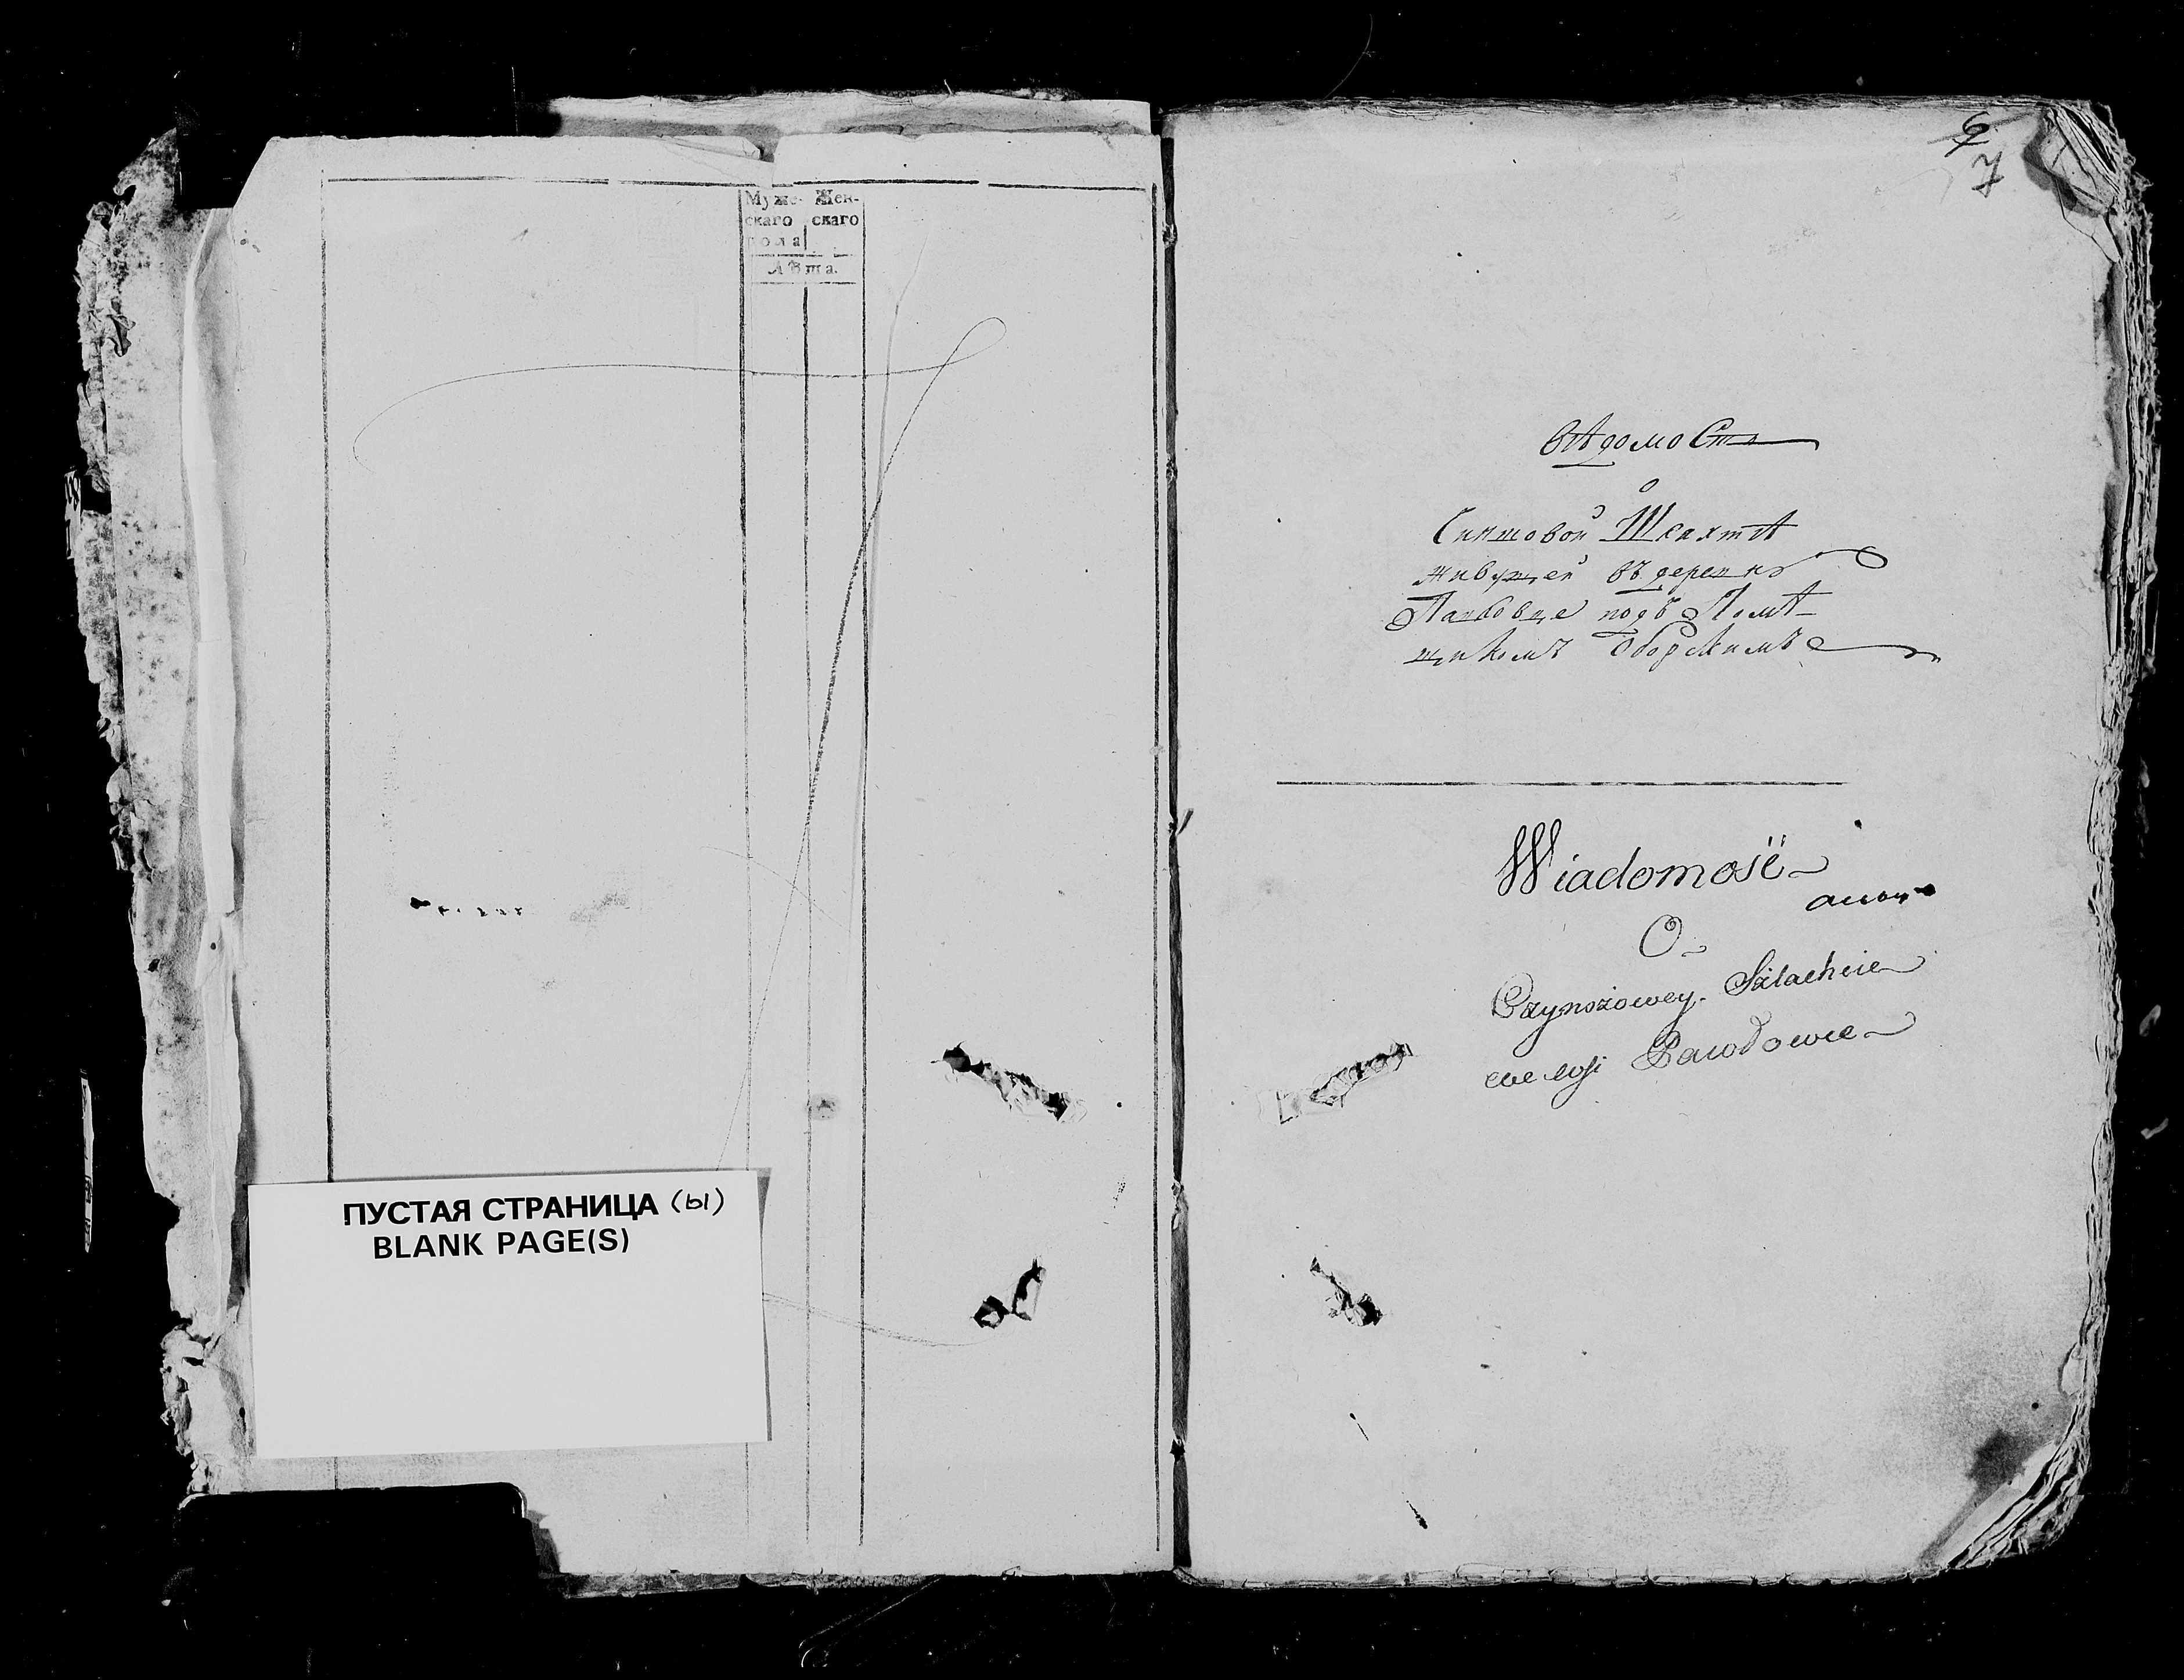 Муже- Жен-
скаго скаго
пола
Лѣта.
ПУСТАЯ СТРАНИЦА (ы)
BLANK PAGE(S)
6
7
вѣдомость
о
Чиншовой Шляхтѣ
живущей въ деревнѣ
подъ Помѣ-
щикомъ
Wiadomość
O
Czynszowey Szlachcie
we wsi